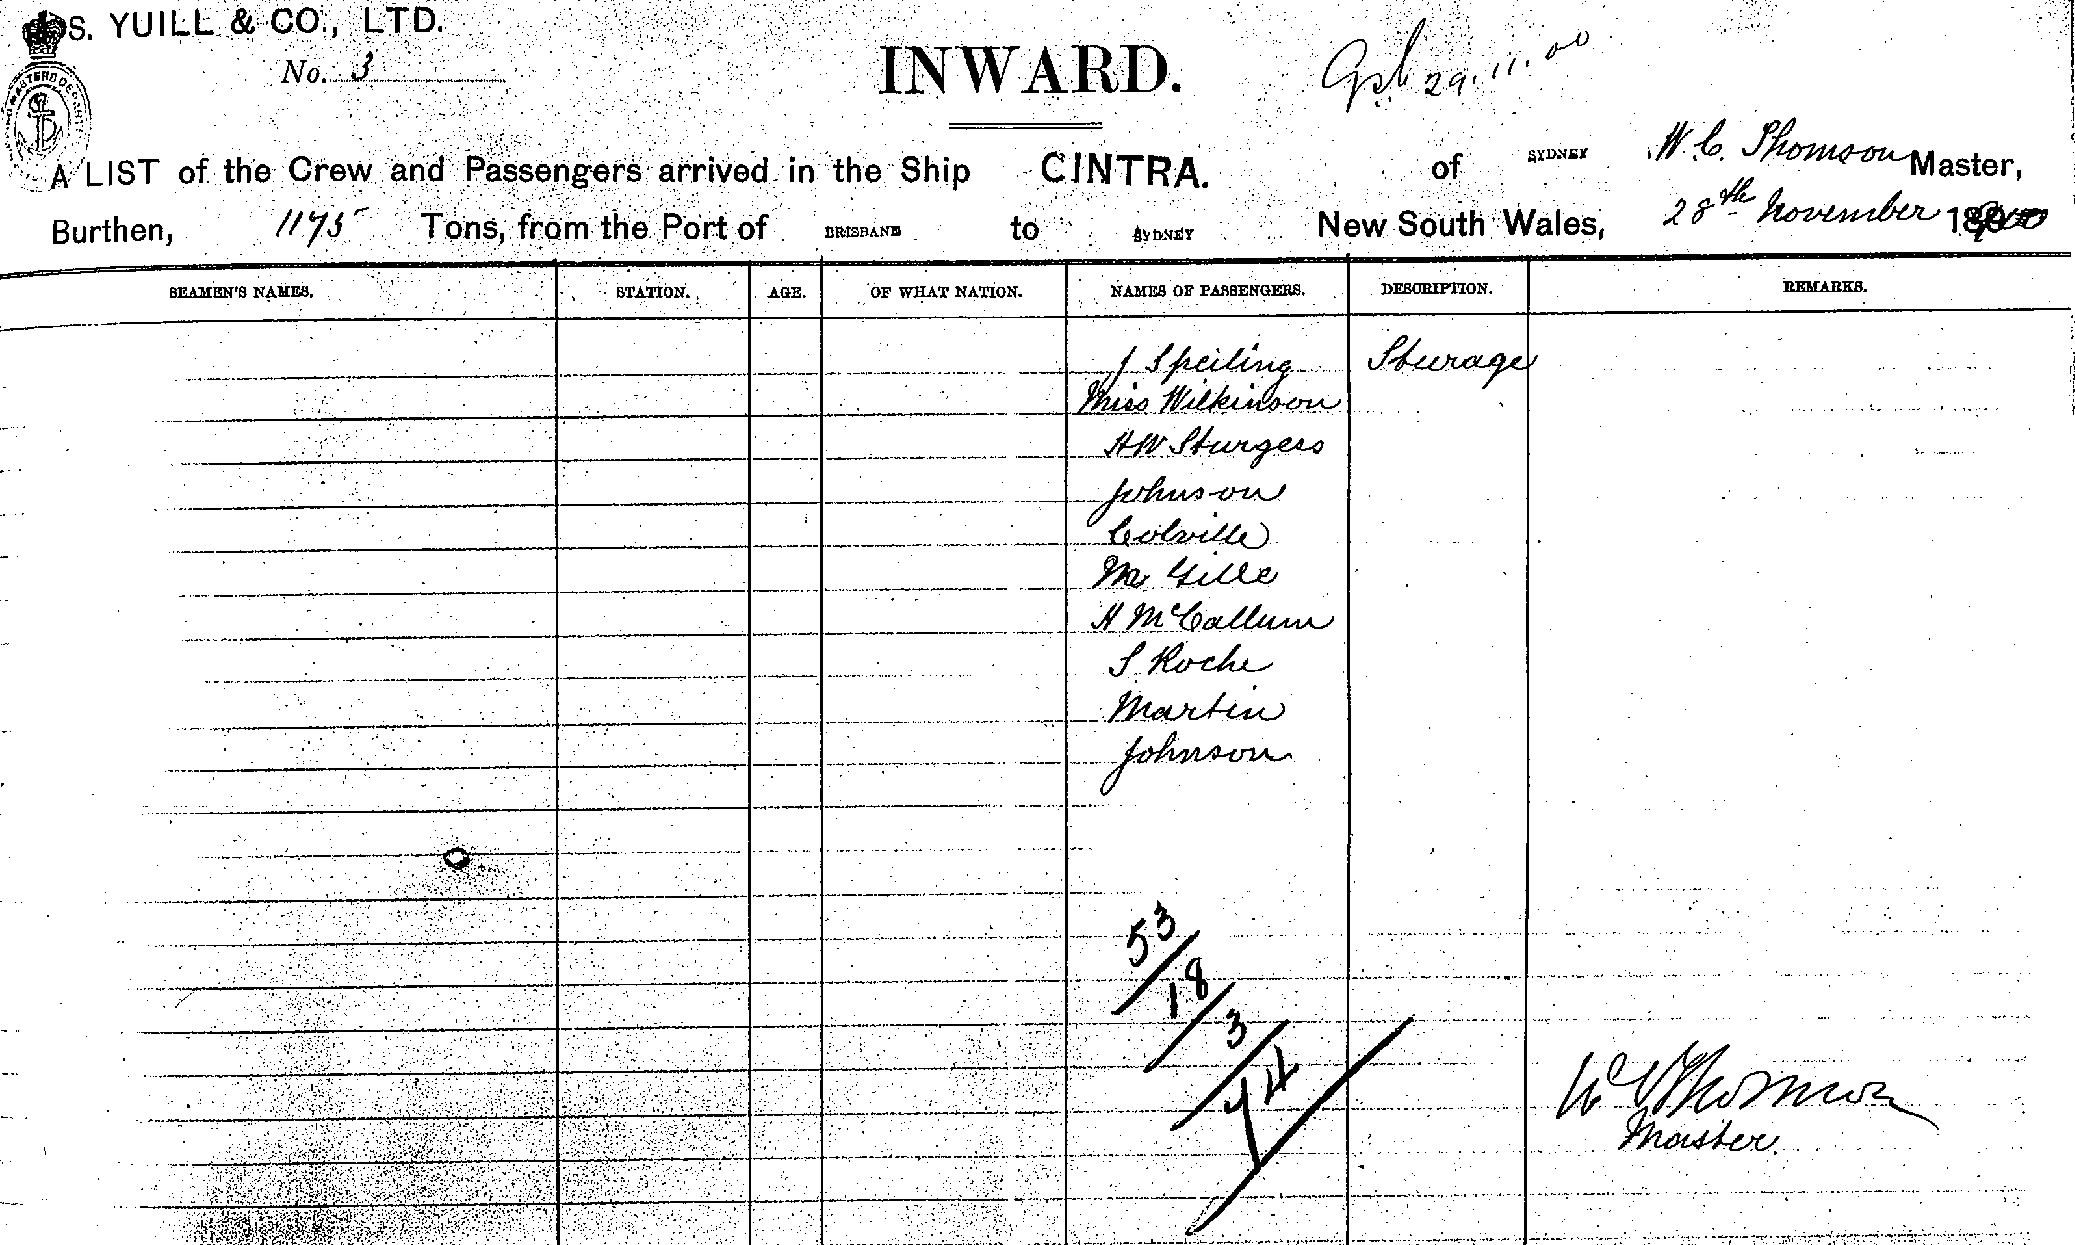 S. YUILL & CO., LTD.
No. 3
INWARD.
29.11.00
A LIST of the Crew and Passengers arrived in the Ship CINTRA. of SYDNEY W. C. Thomson Master,
Burthen, 1175 Tons, from the Port of BRISBANE to SYDNEY New South Wales, 28th November 1900
SEAMEN'S NAMES. STATION. AGE. OF WHAT NATION. NAMES OF PASSENGERS. DESCRIPTION. REMARKS.
J Speiling Sturage
Miss Wilkinson
HW Sturgess
Johnson
Colville
H McCallum
S Roche
Martin
Johnson
53
18
3
74
WC Thomson
Master.